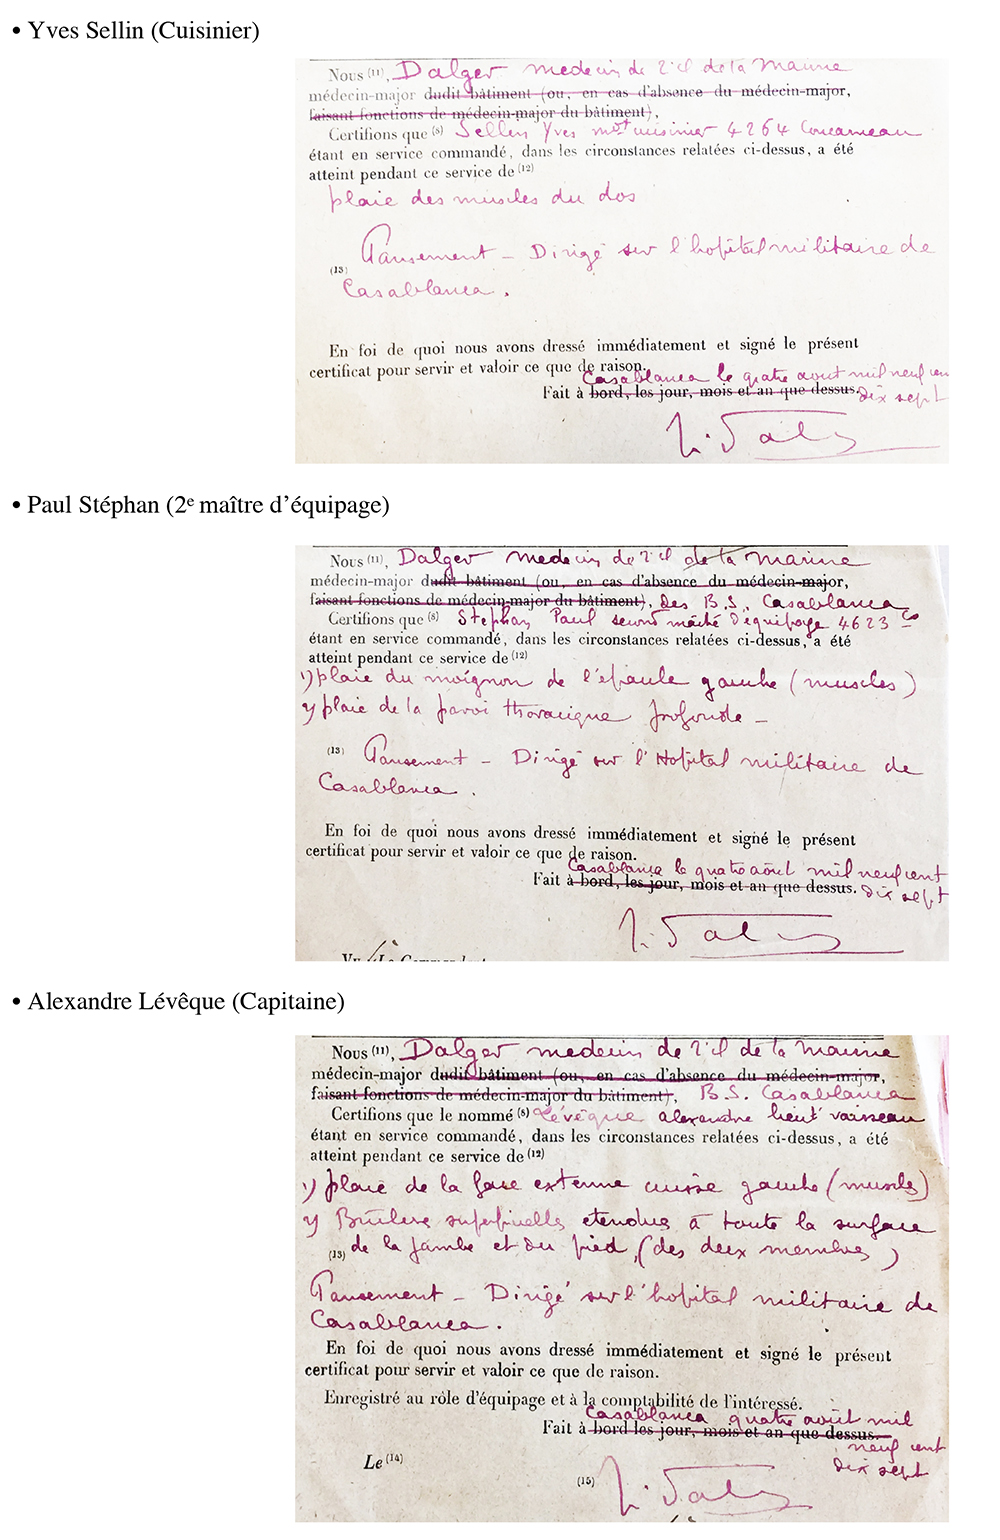 • Yves Sellin (Cuisinier)
Nous (11), Dalger medecin de 2e cl de la Marine
médecin-major dudit bâtiment (ou, en cas d'absence du médecin-major,
faisant fonctions de médecin-major du bâtiment),
Certifions que (8) Sellin Yves mot cuisinier 4264 Concarneau
étant en service commandé, dans les circonstances relatées ci-dessus, a été
atteint pendant ce service de (12)
plaie des muscles du dos
Pansement – Dirigé sur l'hopital militaire de
(13)
Casablanca.
En foi de quoi nous avons dressé immédiatement et signé le présent
certificat pour servir et valoir ce que de raison.
Casablanca le quatre aout mil neuf cent
Fait à bord, les jour, mois et an que dessus. dix sept
• Paul Stéphan (2e maître d'équipage)
Nous (11), Dalger medecin de 2e cl de la Marine
médecin-major dudit bâtiment (ou, en cas d'absence du médecin-major,
faisant fonctions de médecin-major du bâtiment), des B.S. Casablanca
Certifions que (8) Stephan Paul second maître d'équipage 4623 Co
étant en service commandé, dans les circonstances relatées ci-dessus, a été
atteint pendant ce service de (12)
1) plaie du moignon de l'épaule gauche (muscles)
2) plaie de la paroi thoracique profonde –
(13) Pansement – Dirigé sur l'Hopital militaire de
Casablanca.
En foi de quoi nous avons dressé immédiatement et signé le présent
certificat pour servir et valoir ce que de raison.
Casablanca le quatre aout mil neuf cent
Fait à bord, les jour, mois et an que dessus. dix sept
Vu Le Commandant
• Alexandre Lévêque (Capitaine)
Nous (11), Dalger medecin de 2e cl de la Marine
médecin-major dudit bâtiment (ou, en cas d'absence du médecin-major,
faisant fonctions de médecin-major du bâtiment), B.S. Casablanca
Certifions que le nommé (8) Lévêque alexandre lieut vaisseau
étant en service commandé, dans les circonstances relatées ci-dessus, a été
atteint pendant ce service de (12)
1) plaie de la face externe cuisse gauche (muscles)
2) Brûlures superficielles etendues à toute la surface
(13) de la jambe et du pied, (des deux membres)
Pansement – Dirigé sur l'hopital militaire de
Casablanca.
En foi de quoi nous avons dressé immédiatement et signé le présent
certificat pour servir et valoir ce que de raison.
Enregistré au rôle d'équipage et à la comptabilité de l'intéressé.
Casablanca quatre août mil
Fait à bord les jour, mois et an que dessus.
neuf cent
dix sept
Le (14)
(15)